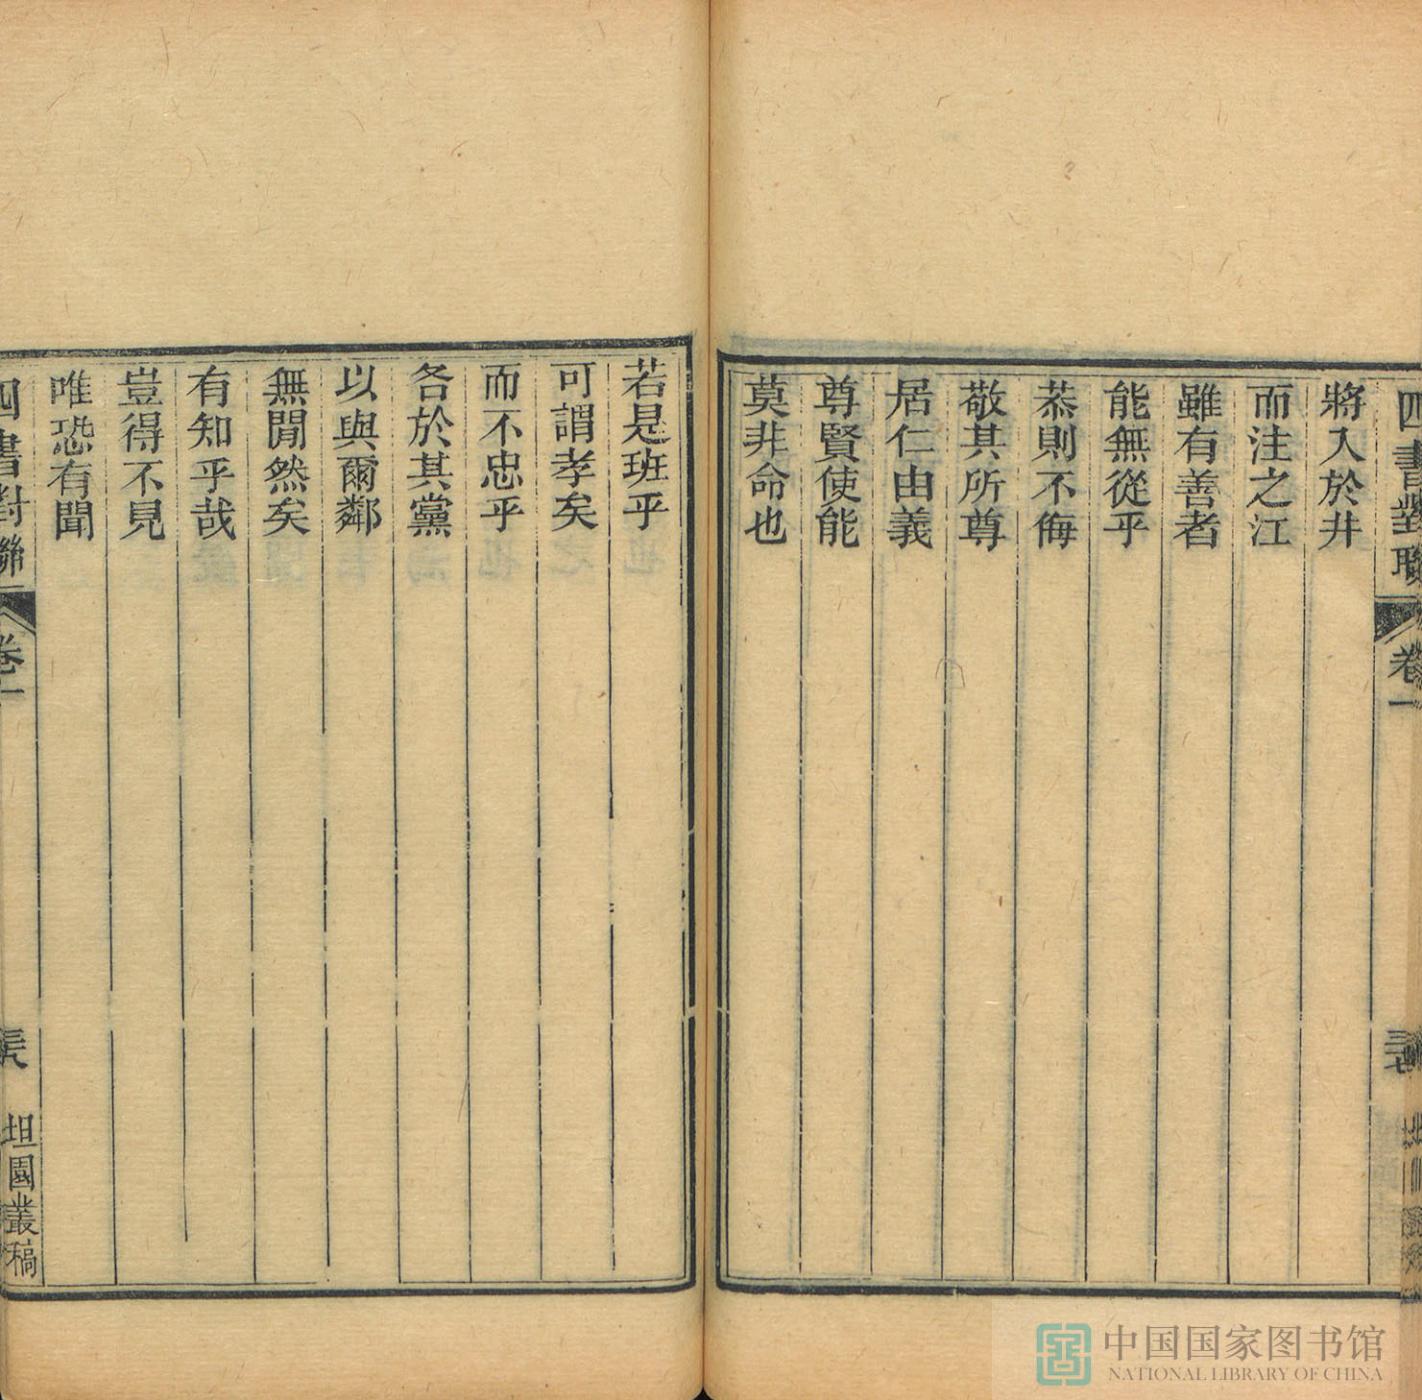 四書對聯
卷一
三七
將入於井
而注之江
雖有善者
能無從乎
恭則不侮
敬其所尊
居仁由義
尊賢使能
莫非命也
若是班乎
可謂孝矣
而不忠乎
各於其黨
以與爾鄰
無閒然矣
有知乎哉
豈得不見
唯恐有聞
四書對聯
卷一
坦園叢稿
中国国家图书馆
NATIONAL LIBRARY OF CHINA